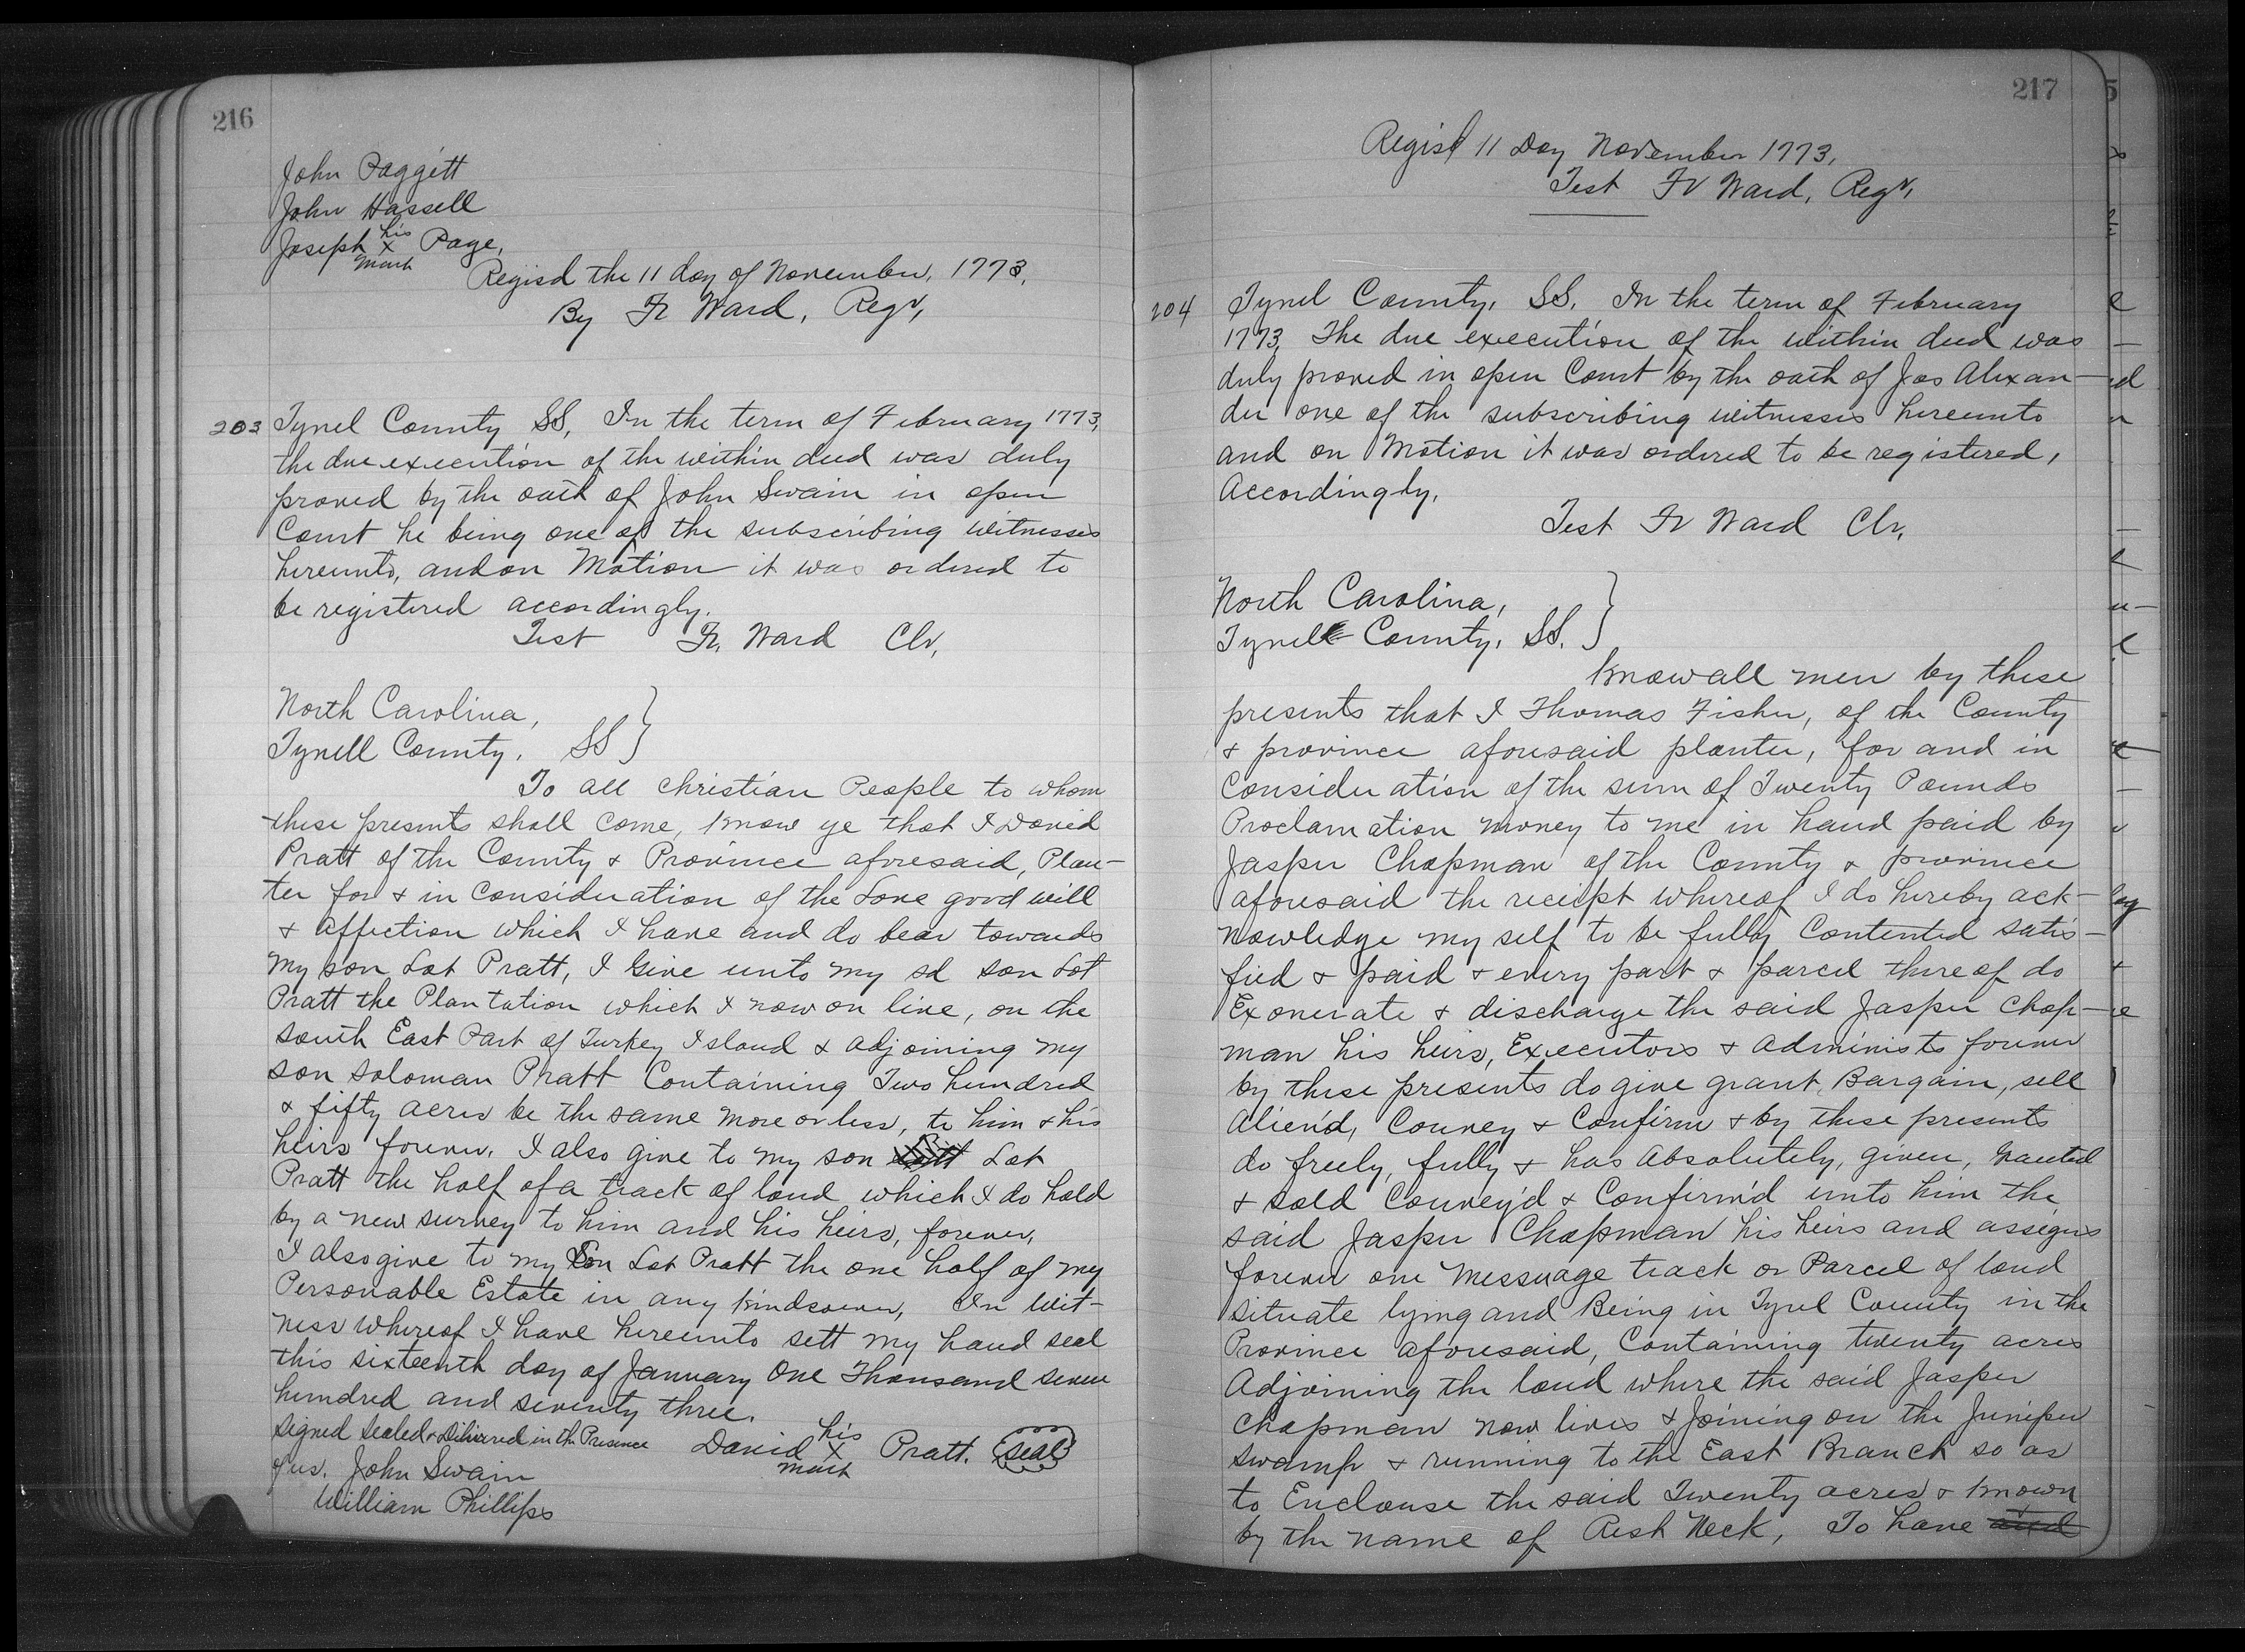 216
John Paggett
John Hassell
Joseph his x mark Page,
Regisd the 11 day of November, 1773,
By Fr Ward, Regr,
203 Tyrrel County SS, In the term of February 1773,
the due execution of the within deed was duly
proved by the oath of John Swain in open
Court he being one of the subscribing witnesses
hereunto, and on Motion it was ordered to
be registered accordingly.
Test Fr, Ward Clr,
North Carolina,
Tyrrell County, SS }
To all Christian People to whom
these presents shall come, know ye that I David
Pratt of the County & Province aforesaid, Plan-
ter for & in consideration of the Love good will
& affection which I have and do bear towards
my son Lot Pratt, I Give unto my sd son Lot
Pratt the Plantation which I now on live, on the
South East Part of Turkey Island & adjoining my
son Soloman Pratt Containing Two hundred
& fifty acres be the same more or less, to him & his
heirs forever. I also give to my son Lot
Pratt the half of a track of land which I do hold
by a new survey to him and his heirs, forever,
I also give to my Son Lot Pratt the one half of my
Personable Estate in any kindsoever, In Wit-
ness whereof I have hereunto sett my hand seal
this sixteenth day of January One Thousand seven
hundred and seventy three.
Signed Sealed & Delivered in the Presence David his x mark Pratt. (seal)
of us. John Swain
William Phillips
217
Regisd 11 Day November 1773,
Test Fr Ward, Regr,
204 Tyrrel County, SS, In the term of February
1773, The due execution of the within deed was
duly proved in open Court by the oath of Jas Alexan-
der one of the subscribing witnesses hereunto
and on Motion it was ordered to be registered,
Accordingly,
Test Fr Ward Clr,
North Carolina,
Tyrrell County, SS. }
Know all men by these
presents that I Thomas Fisher, of the County
& province aforesaid planter, for and in
Consideration of the sum of Twenty Pounds
Proclamation money to me in hand paid by
Jasper Chapman of the County & province
aforesaid the receipt whereof I do hereby ack-
nowledge my self to be fully Contented satis-
fied & paid & every part & parcel thereof do
Exonerate & discharge the said Jasper Chap-
man his heirs, Executors & Administs forever
by these presents do give grant, Bargain, sell
Alien'd, Convey & Confirm & by these presents
do freely, fully & has Absolutely, given, Granted
& sold Convey'd & Confirm'd unto him the
said Jasper Chapman his heirs and assigns
forever one Messuage track or Parcel of land
situate lying and Being in Tyrel County in the
Province aforesaid, Containing twenty acres
Adjoining the land where the said Jasper
Chapman now lives & Joining on the Juniper
Swamp & running to the East Branch so as
to Enclouse the said Twenty acres & known
by the name of Rest Neck, To have and